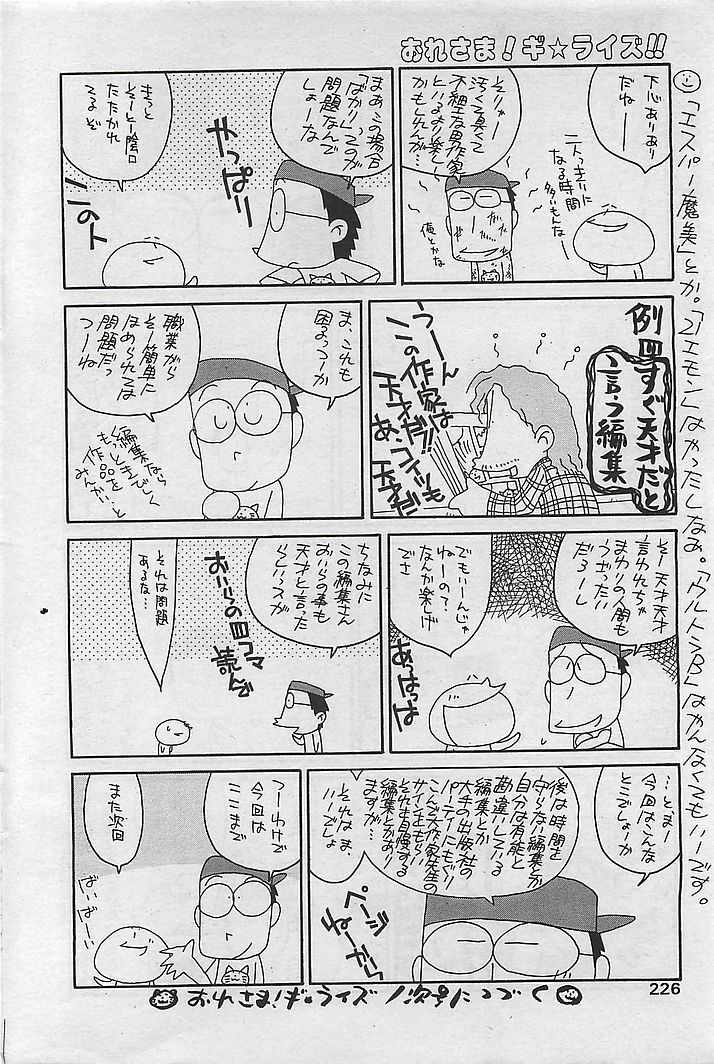 むれさま！ギ☆ライズ!!
「エスパー魔美」とか。「21エモン」はやったしなぁ。「ウルトラB」はやんなくてもいーです。
下心ありあり
だねー
二人っきりに
なる時間
多いもんなー
そりゃー
汚くて臭くて
不細工な男作家
といるより楽しー
かもしれんが…
俺とかな
まぁこの場合
「ばかり」ってのが
問題なんで
しょーな
やっぱり
きっと
そーとー陰口
たたかれ
てるぞ
この人
例四
すぐ天才だと
言う編集
うーん
この作家は
天才だ!!
あ、コイツも
天才だ
ま、これも
困るっつーか
職業がら
そー簡単に
ほめられては
問題だっ
つーね
編集なら
もっときびしく
作品を
みんか…と
そー天才天才
言われちゃ
まわりの人間も
うざったい
だろーし
でもいーんじゃ
ねーの？
なんか楽しげ
でさ
あっはっは
ちなみに
この編集さん
おいらの事も
天才と言った
らしいっスが
おいらの四コマ
読んで
それは問題
あるな…
…とまー
今回はこんな
とこでしょーか
後は時間を
守らない編集とか
自分は有能と
勘違いしている
編集とか
大手の出版社の
パーティーにもぐり
こんで大作家先生の
サイン色も
それを自慢する
編集とかあり
ますが…
それはま、
いーでしょ
ページ
ねーから
つーわけで
今回は
ここまで
また次回
ばいばーい
おれさま！ギ☆ライズ／次号につづく
226